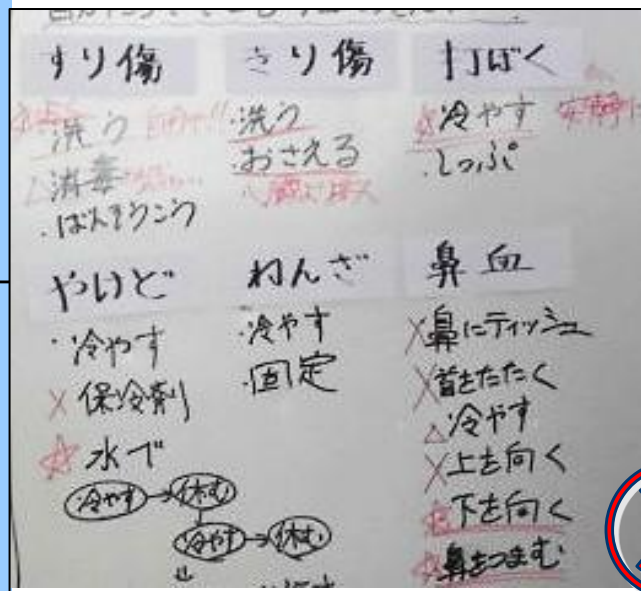 すり傷
洗う
消毒
・ばんそうこう
きり傷
・洗う
・おさえる
打ぼく
☆冷やす 安静に
・しっぷ
やけど
・冷やす
×保冷剤
☆水で
冷やす→休む
冷やす→休む
ねんざ
・冷やす
・固定
鼻血
×鼻にティッシュ
×首をたたく
△冷やす
×上を向く
☆下を向く
☆鼻をつまむ